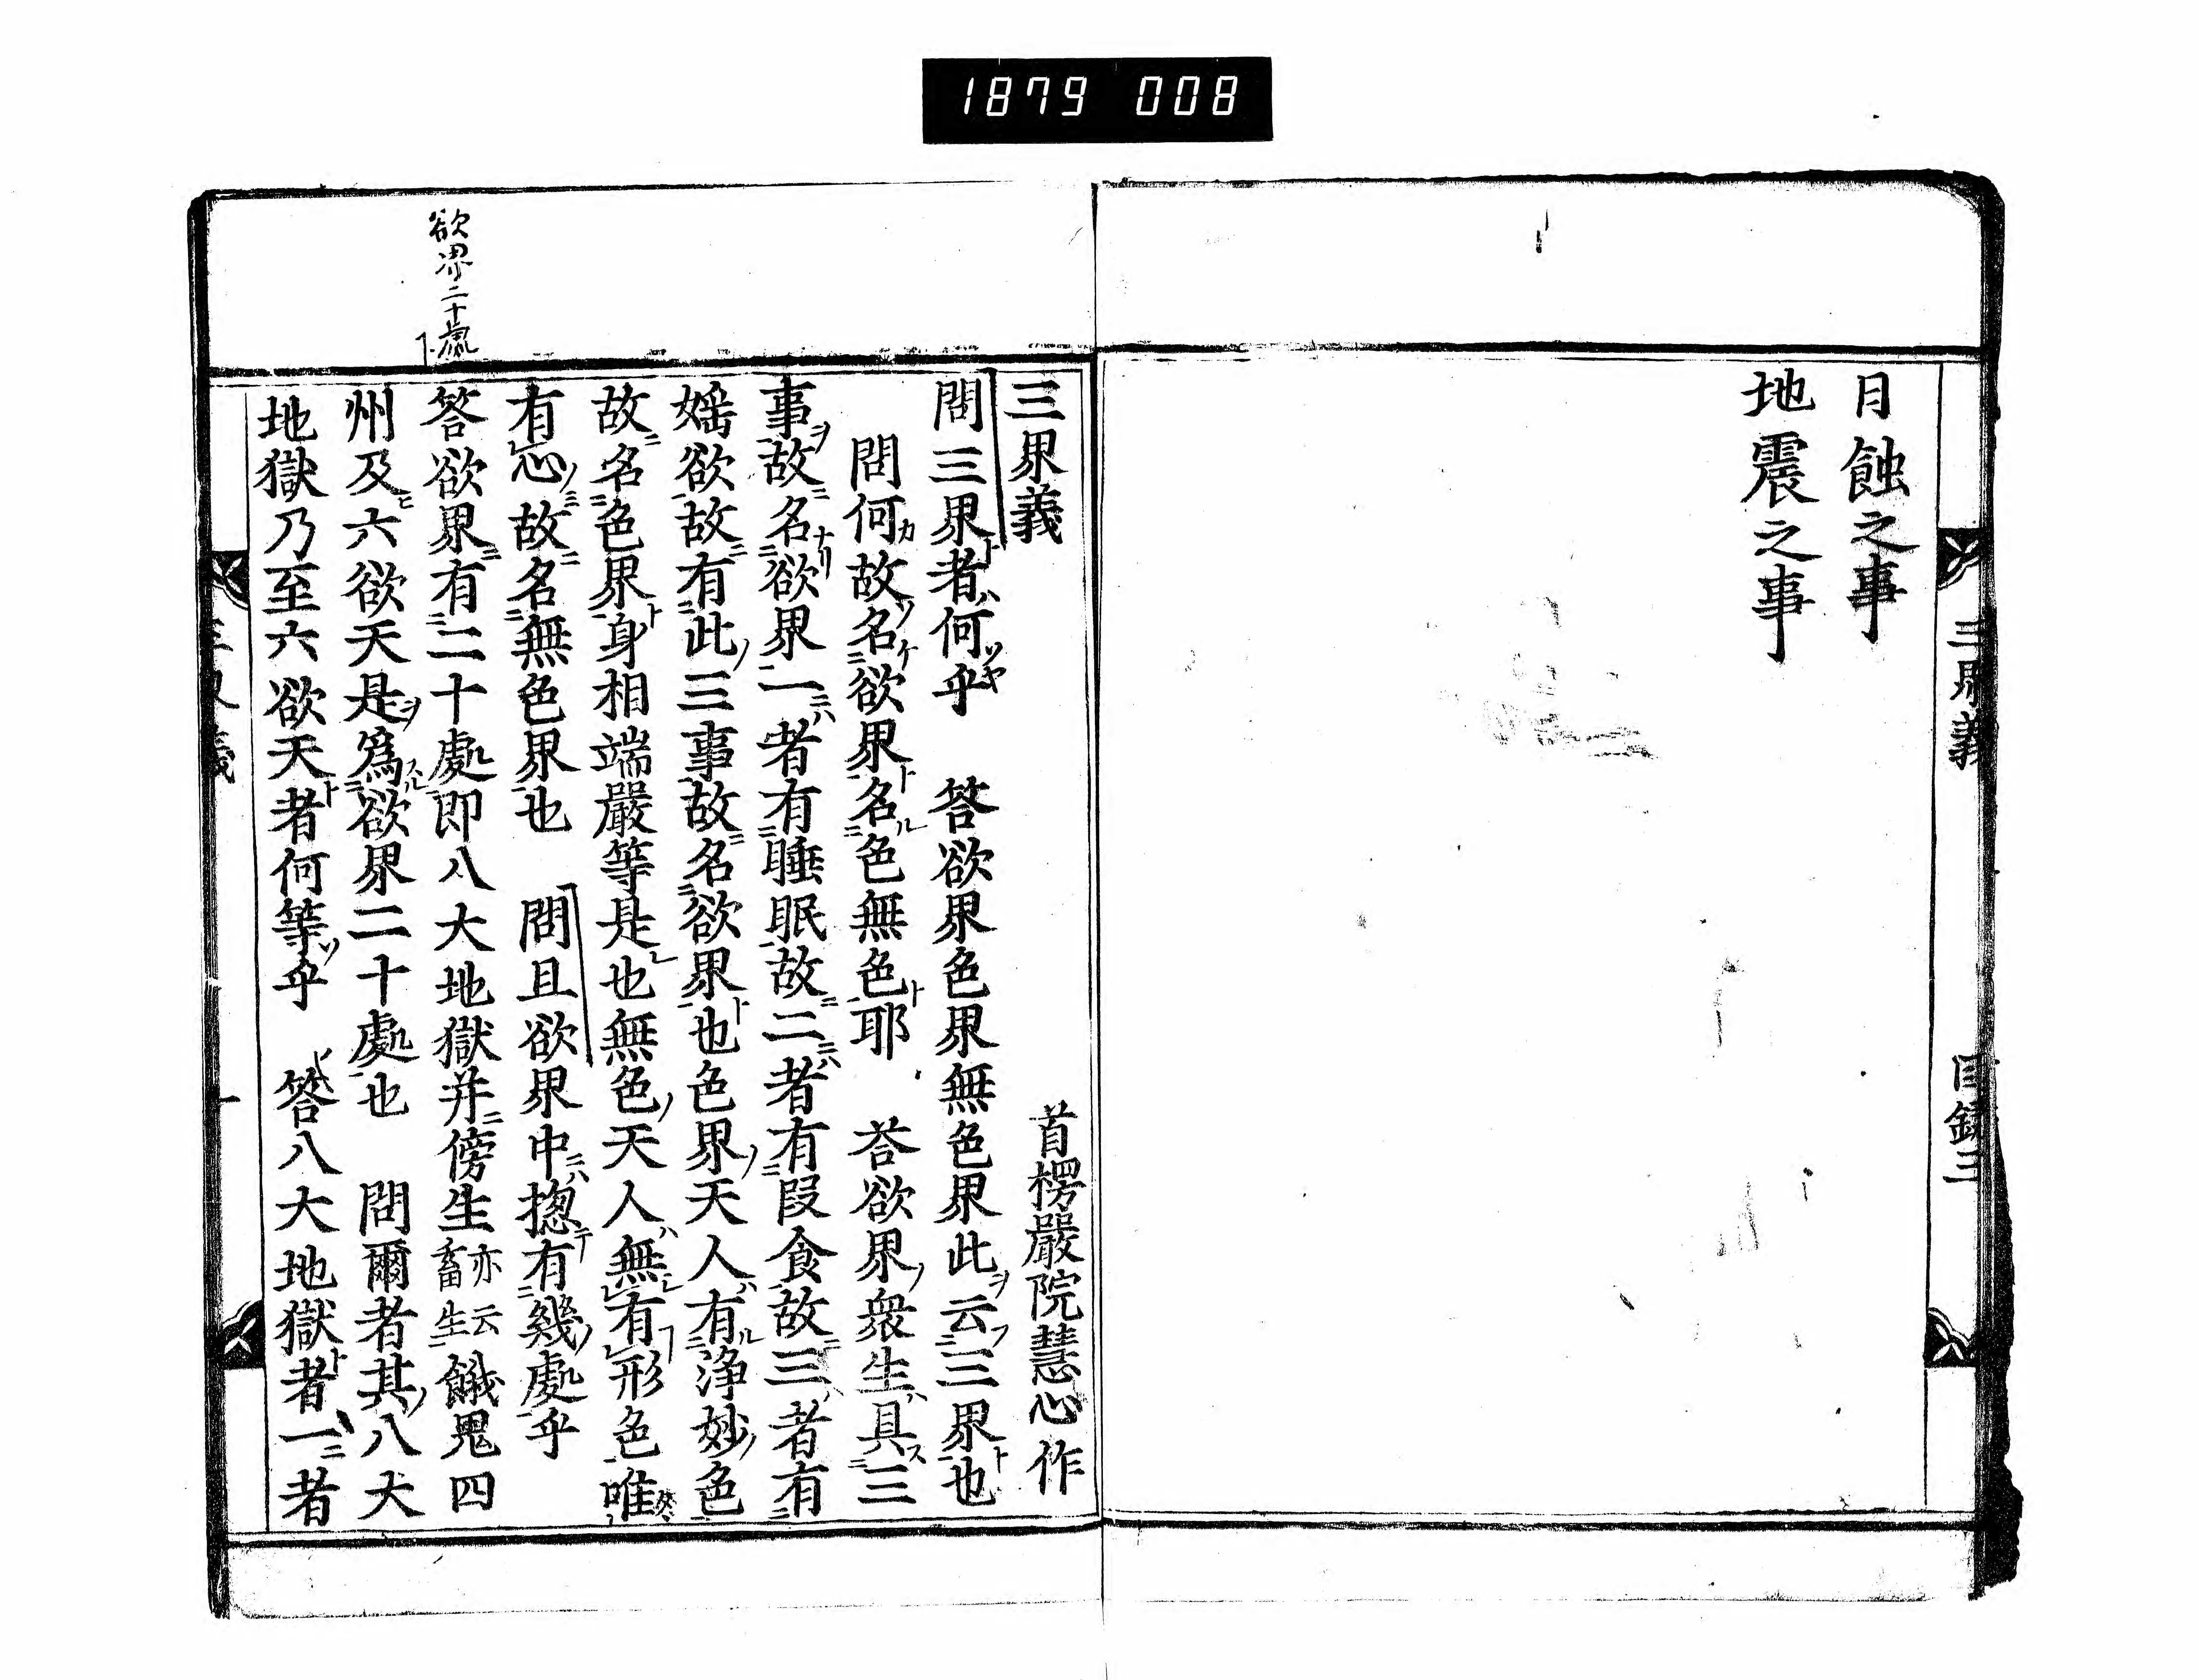 1879 008
月蝕之事
地震之事
三界義
目錄三
三界義
首楞嚴院慧心作
問三界者何乎 答欲界色界無色界此云三界也
問何故名欲界名色無色耶 答欲界衆生具三
事故名欲界一者有睡眠故二者有段食故三者有
婬欲故有此三事故名欲界也色界天人有淨妙色
故名色界身相端嚴等是也無色天人無有形色唯
有心故名無色界也 問且欲界中揔有幾處乎
答欲界有二十處即八大地獄并傍生亦云畜生餓鬼四
州及六欲天是爲欲界二十處也 問爾者其八大
地獄乃至六欲天者何等乎 答八大地獄者一者
欲界二十處
三界義
一